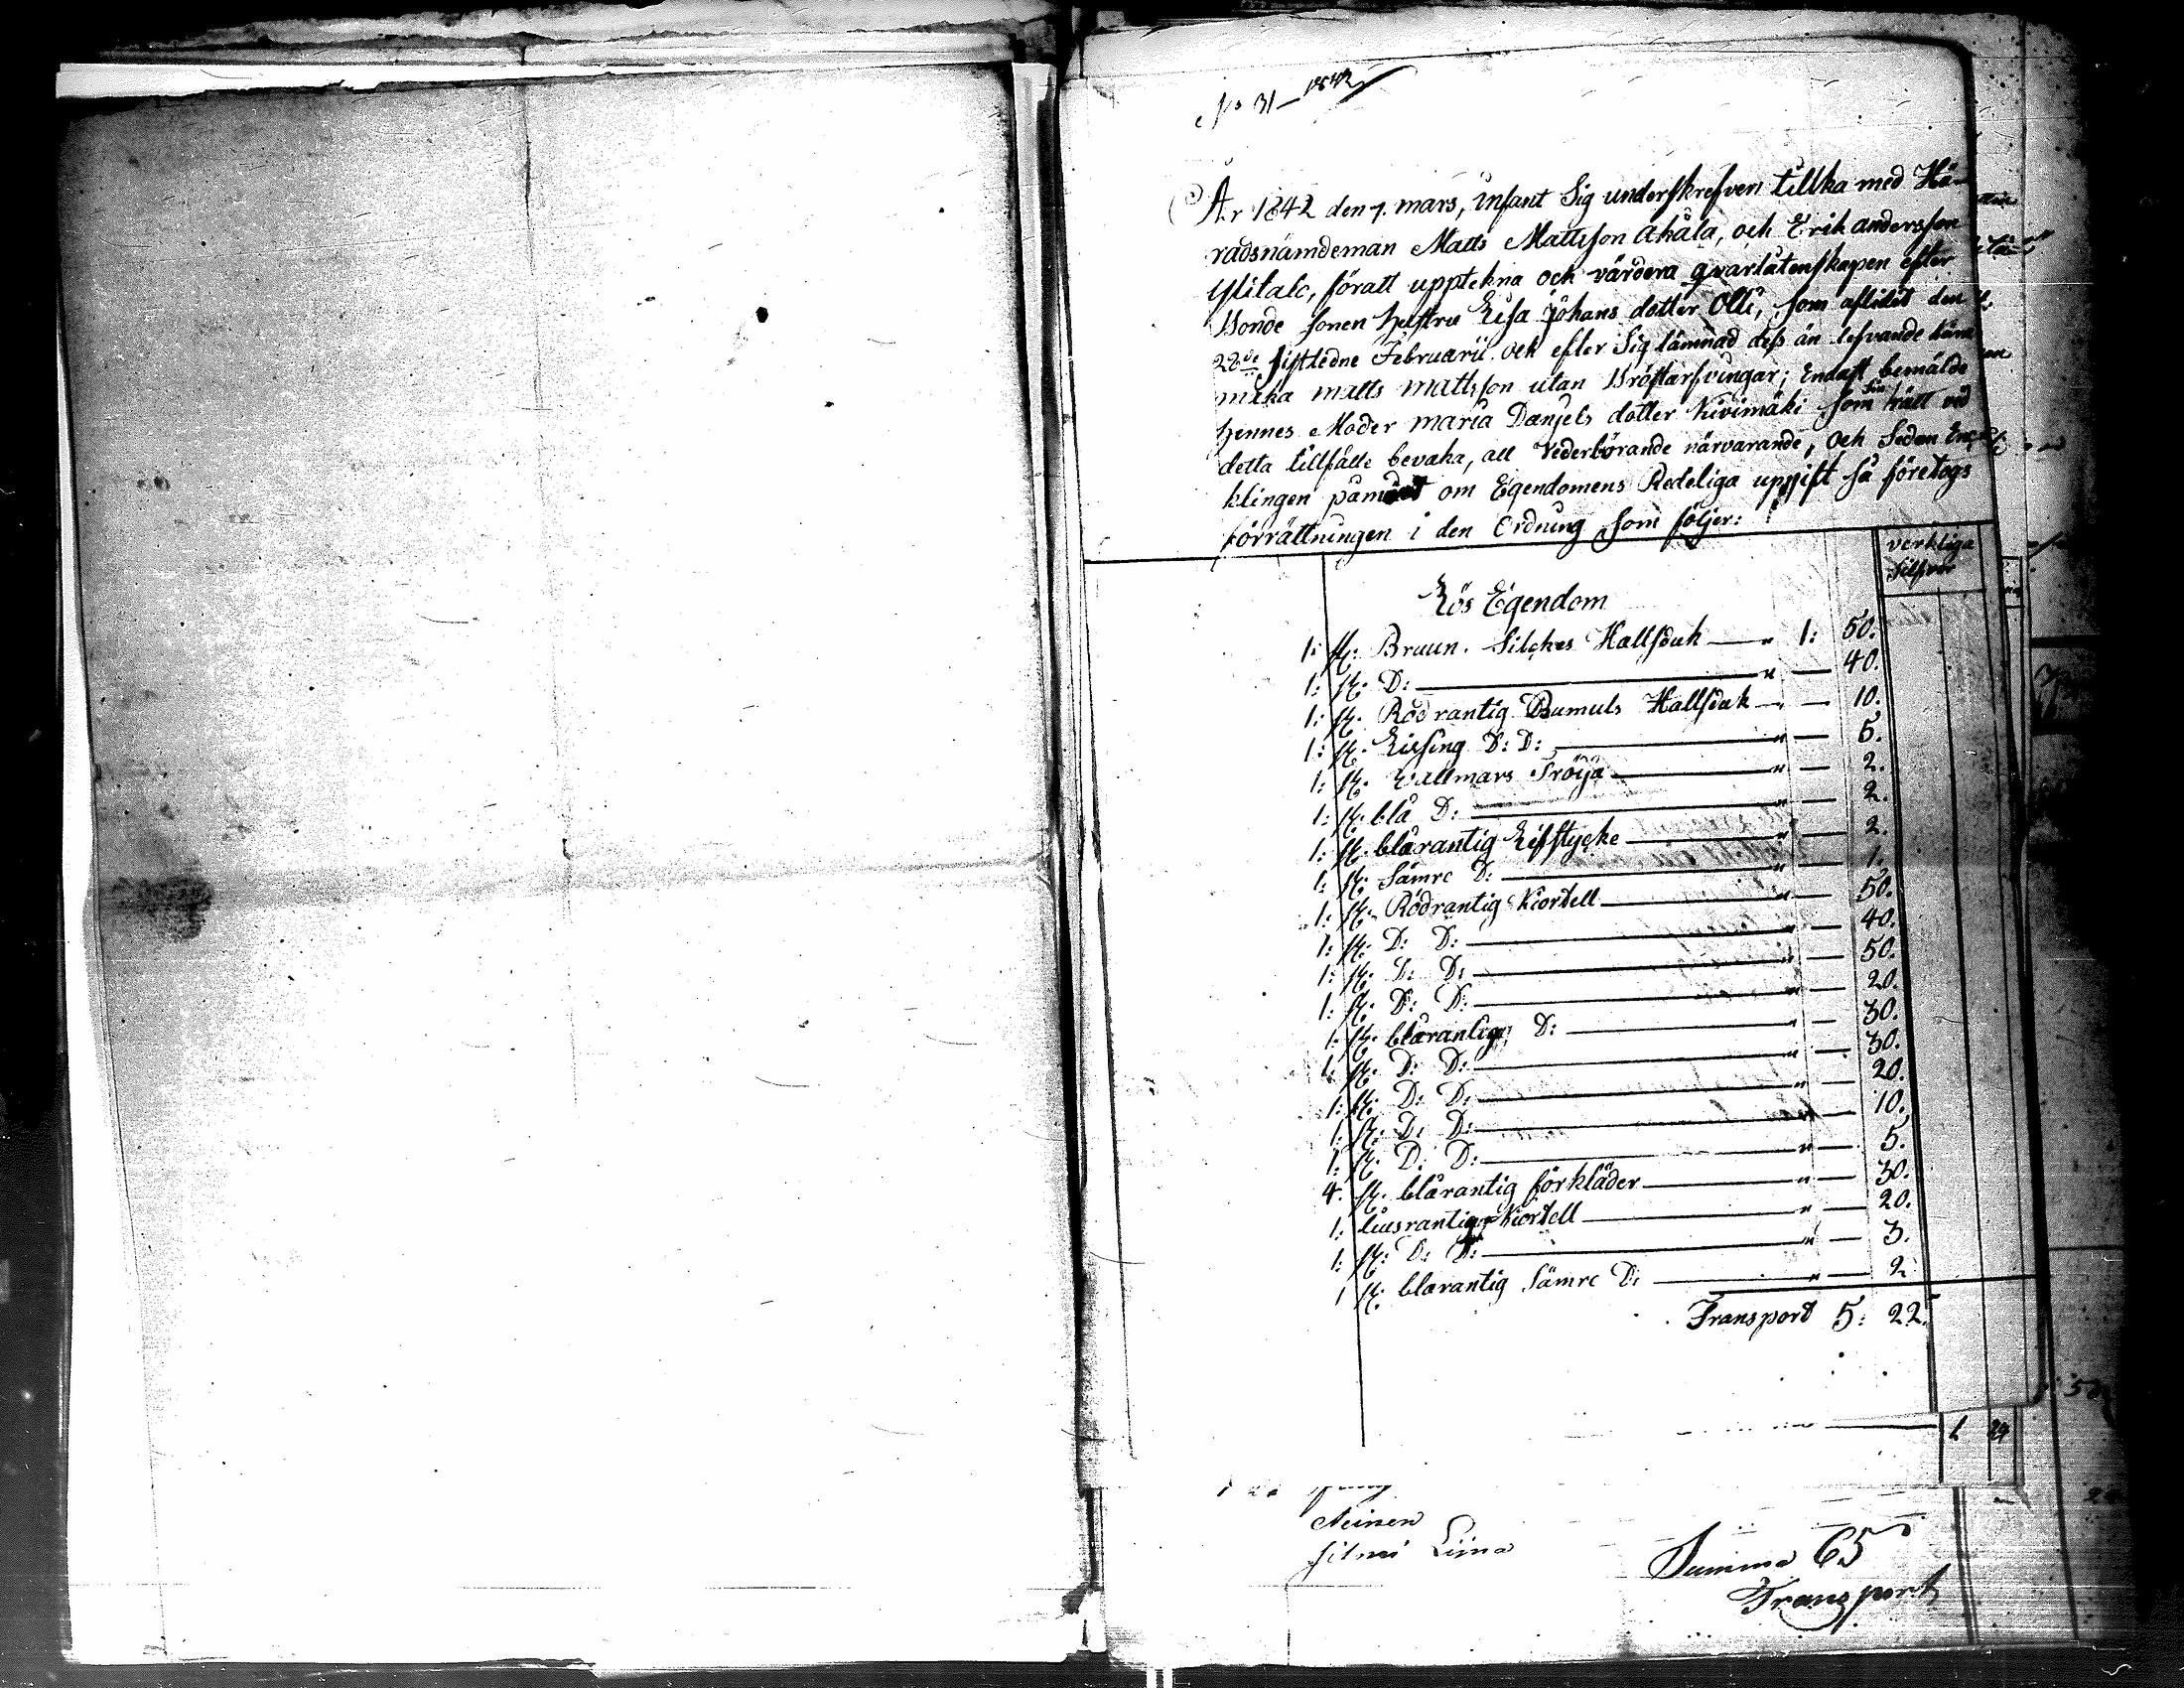 No 31 — 1842
År 1842 den 7. mars, infant Sig underskrefven tillika med Hä-
radsnämdeman Matts Mattsson Ahala, och Erik andersson
Ylitalo, föratt upptekna och värdera qvarlåtenskapen efter
Bonde sonen hustru Lisa Johans dotter Olli, som aflidit den
22de sistledne Februarii och efter Sig lämnad dess än lefvande
maka matts mattsson utan Bröstarfvingar; Endast bemälde
hennes Moder maria Danjels dotter Kivimäki som sin rätt vid
detta tillfälle bevaka, all Vederbörande närvarande, och Sedan Enc-
klingen påmint om Egendomens Redeliga uppgift så företogs
förrättningen i den Ordning som följer:
verkliga
Silfver
Lös Egendom
1: st. Bruun. Silckes Hallsduk — " 1: 50.
1: st. D: — " — 40.
1: st. Rödrantig Bumuls Hallsduk — " — 10.
1: st. Lissing D: D: — " — 5.
1: st. Wallmars Tröija — " — 2.
1: st. blå D: — " — 2.
1: st. blårantig Lifstycke — " — 2.
1: st. Sämre D: — " — 1.
1: st. Rödrantig Kiortell — " — 50.
1: st. D: D: — " — 40.
1: st. D: D: — " — 50.
1: st. D: D: — " — 20.
1: st. blårantig D: — " — 30.
1: st. D: D: — " — 30.
1: st. D: D: — " — 20.
1: st. D: D: — " — 10.
1: st. D: D: — " — 5.
4. st. blårantig förkläder — " — 30.
1: liusrantig Kiortell — " — 20.
1: st. D: D: — " — 3.
1 st. blarantig Sämre D: — " — 2
Transport 5: 22.
1 24
Liina
Summa 65
Transport